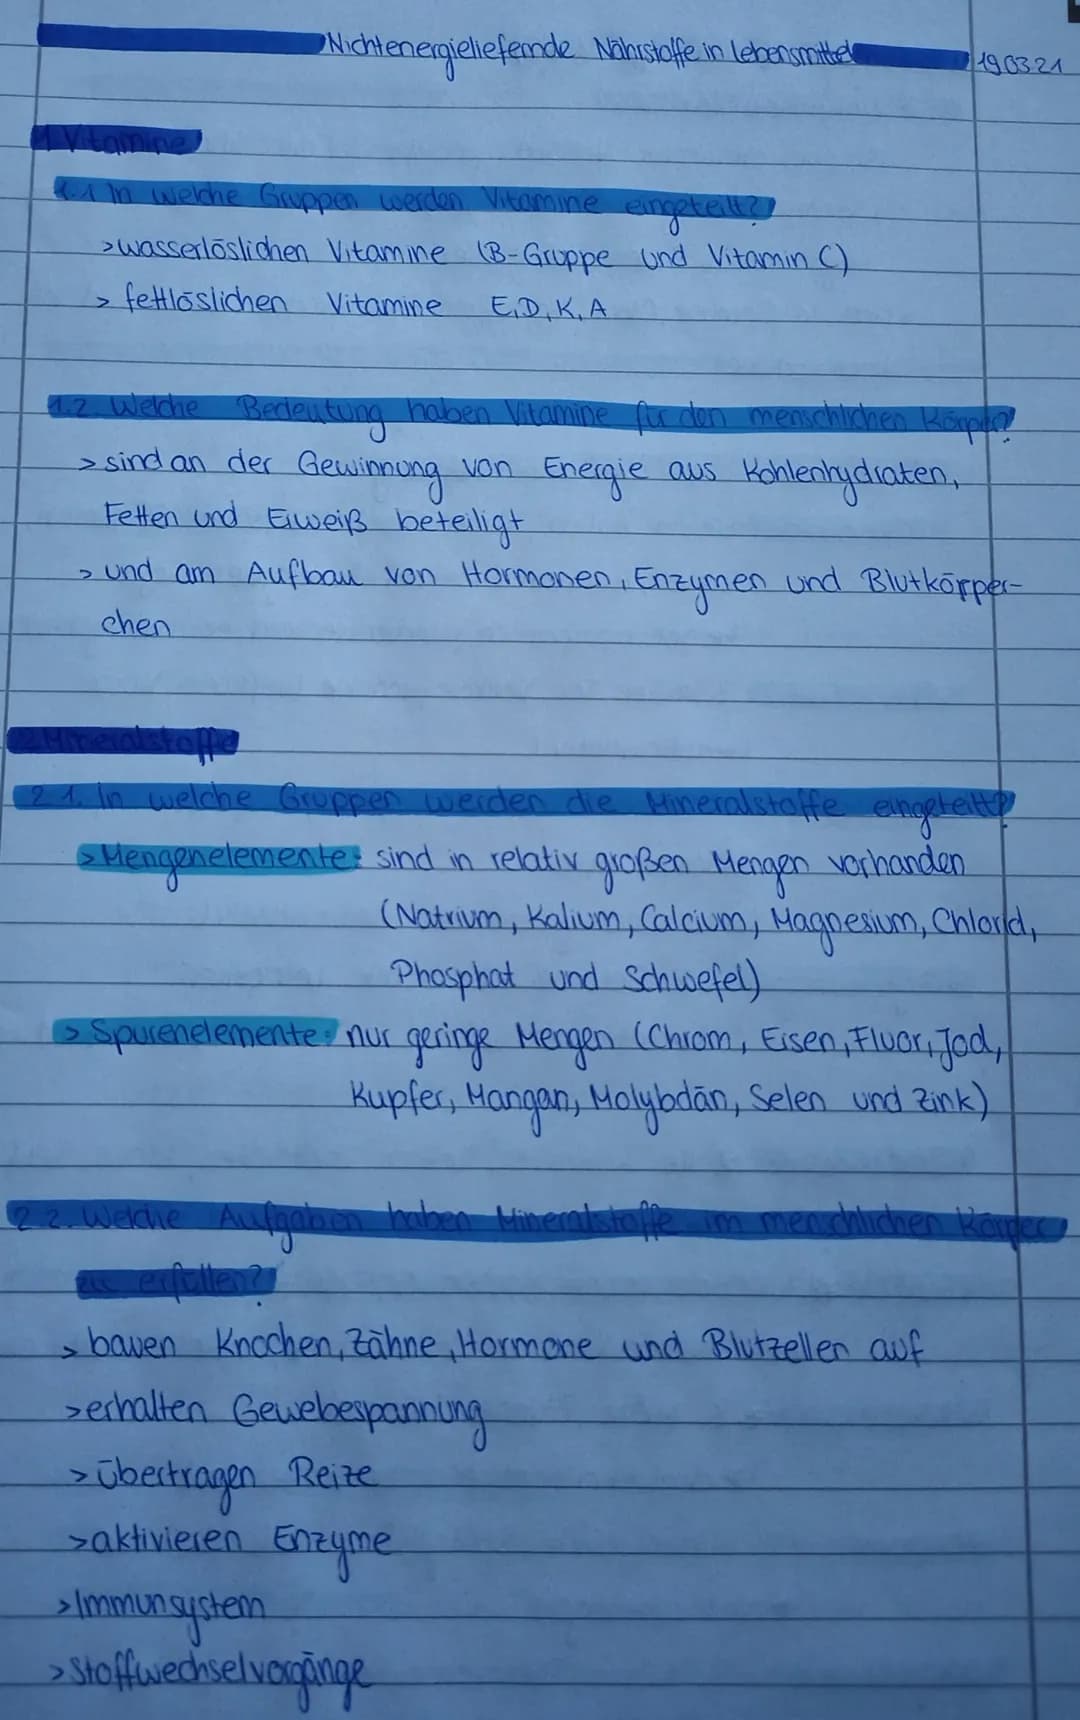 Nichtenergieliefernde Nährstoffe in Lebensmittel 19.03.21
1 Vitamine
1.1 In welche Gruppen werden Vitamine eingeteilt?
> wasserlöslichen Vitamine (B-Gruppe und Vitamin C)
> fettlöslichen Vitamine E, D, K, A
1.2. Welche Bedeutung haben Vitamine für den menschlichen Körper?
> sind an der Gewinnung von Energie aus Kohlenhydraten,
Fetten und Eiweiß beteiligt
> und am Aufbau von Hormonen, Enzymen und Blutkörper-
chen
2 Mineralstoffe
2.1. In welche Gruppen werden die Mineralstoffe eingeteilt?
> Mengenelemente: sind in relativ großen Mengen vorhanden
(Natrium, Kalium, Calcium, Magnesium, Chlorid,
Phosphat und Schwefel)
> Spurenelemente: nur geringe Mengen (Chrom, Eisen, Fluor, Jod,
Kupfer, Mangan, Molybdän, Selen und Zink)
2.2. Welche Aufgaben haben Mineralstoffe im menchlichen Körper
zu erfüllen?
> bauen Knochen, Zähne, Hormone und Blutzellen auf
> erhalten Gewebespannung
> übertragen Reize
> aktivieren Enzyme
> Immunsystem
> Stoffwechselvorgänge